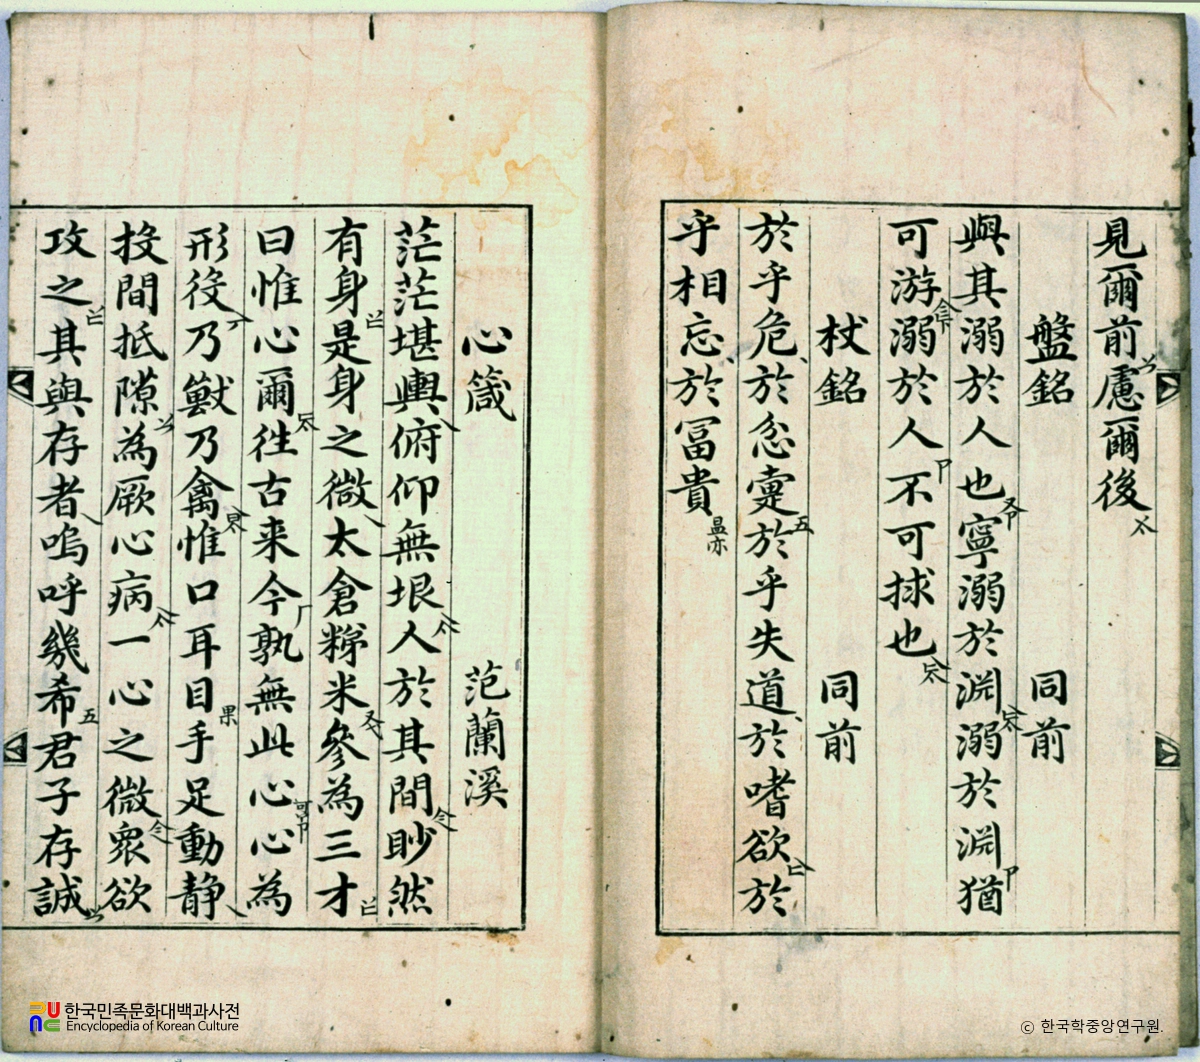 見爾前慮爾後
盤銘 同前
與其溺於人也寧溺於淵溺於淵猶
可游溺於人不可捄也
杖銘 同前
於乎危於忿疐於乎失道於嗜欲於
乎相忘於冨貴
心箴 范蘭溪
茫茫堪輿俯仰無垠人於其間眇然
有身是身之微太倉稊米參為三才
曰惟心爾徃古来今孰無此心心為
形役乃獸乃禽惟口耳目手足動静
投間抵隙為厥心病一心之微衆欲
攻之其與存者嗚呼幾希君子存誠
한국민족문화대백과사전
Encyclopedia of Korean Culture
© 한국학중앙연구원.